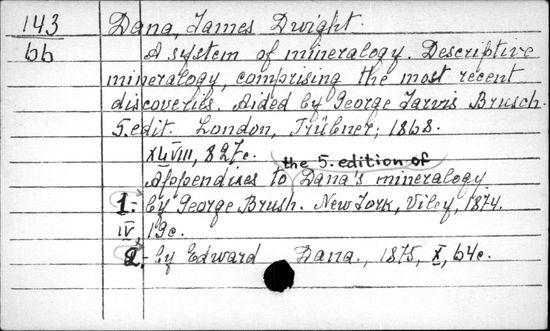 143 Dana, James Dwight.
bb A system of mineralogy. Descriptive
mineralogy, comprising the most recent
discoveries. Aided by George Jarvis Brusch.
5.edit. London, Trübner, 1868.
XLVIII, 827c.
the 5. edition of
Appendixes to Dana's mineralogy
1.- by George Brush. New York, Viley, 1874.
IV 19c.
2.- by Edward Dana., 1875, X, 64c.